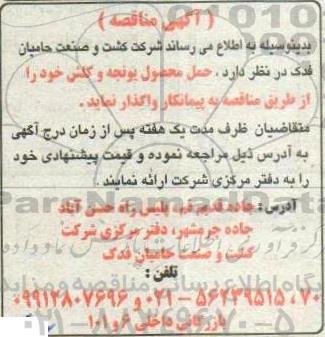 ( آگهی مناقصه )
بدینوسیله به اطلاع می رساند شرکت کشت و صنعت حامیان
فدک در نظر دارد ، حمل محصول یونجه و کلش خود را
از طریق مناقصه به پیمانکار واگذار نماید .
متقاضیان ظرف مدت یک هفته پس از زمان درج آگهی
به آدرس ذیل مراجعه نموده و قیمت پیشنهادی خود
را به دفتر مرکزی شرکت ارائه نمایند .
آدرس : جاده قدیم قم، پلیس راه حسن آباد
جاده چرمشهر، دفتر مرکزی شرکت
کشت و صنعت حامیان فدک
تلفن :
۷۰، ۵۶۲۳۹۵۱۵-۰۲۱ و ۰۹۹۱۲۸۰۷۶۹۶
بازرگانی داخلی ۶ و ۱۰۱